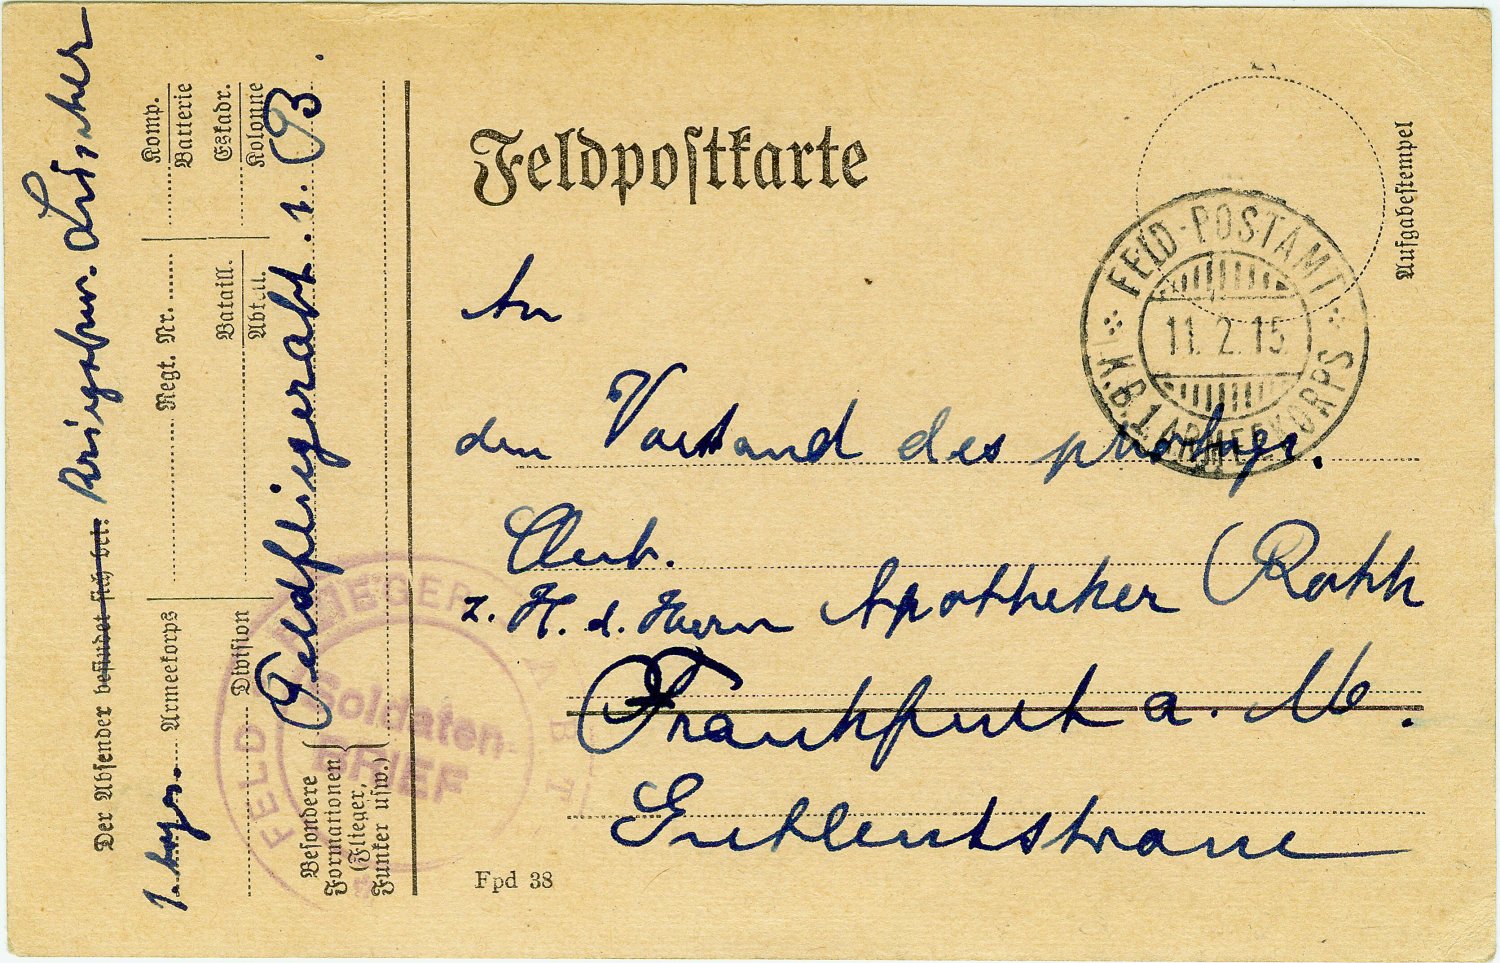 Feldpostkarte
Aufgabestempel
FELD-POSTAMT
11. 2. 15
K.B.1. ARMEEKORPS
An
den Vorstand des
Club.
z. H. d. Herrn Apotheker
Frankfurt a. M.
Gutleutstrasse
Fpd 38
Der Absender befindet sich bei:
1. bayr. Armeekorps
Division
Regt. Nr.
Bataill.
Abteil.
Komp.
Batterie
Eskadr.
Kolonne
Besondere
Formationen
(Flieger,
Funker usw.)
Feldfliegerabt. 1. B.
FELD FLIEGER ABT
Soldaten
BRIEF